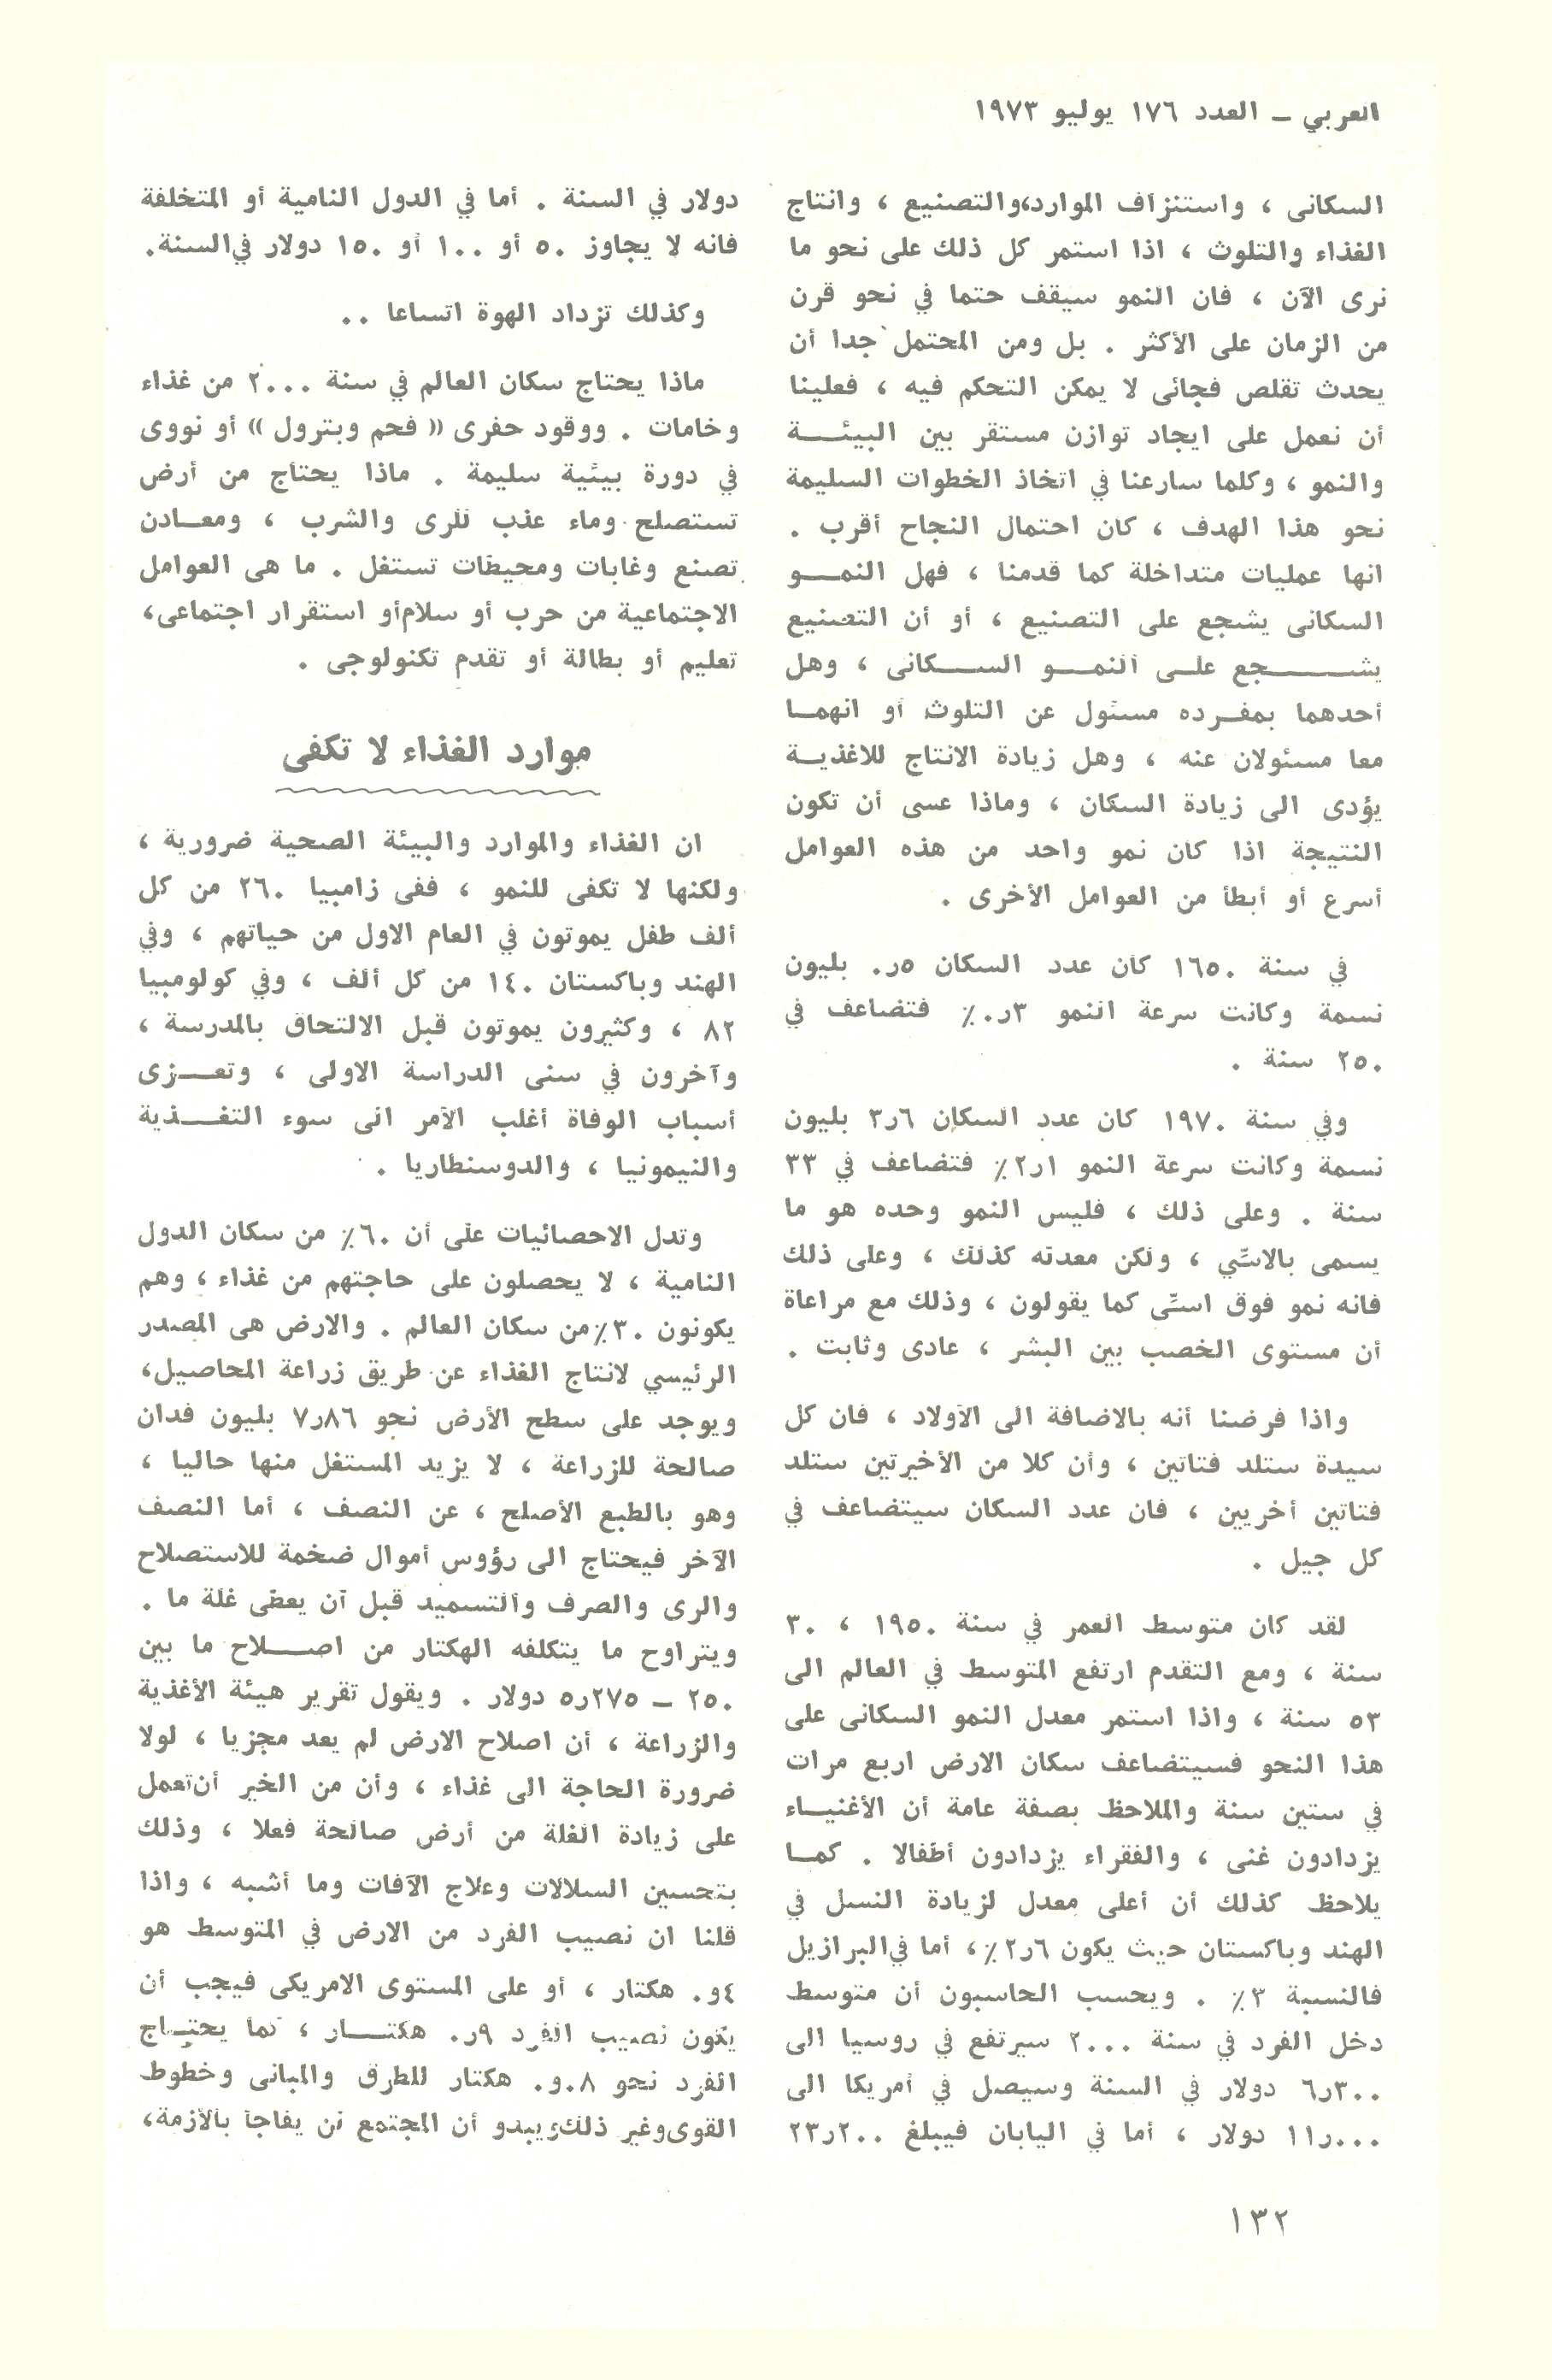 العربي ـ العدد ١٧٦ يوليو ١٩٧٣
السكانى ، واستنزاف الموارد،والتصنيع ، وانتاج
الغذاء والتلوث ، اذا استمر كل ذلك على نحو ما
نرى الآن ، فان النمو سيقف حتما في نحو قرن
من الزمان على الأكثر . بل ومن المحتمل جدا أن
يحدث تقلص فجائى لا يمكن التحكم فيه ، فعلينا
أن نعمل على ايجاد توازن مستقر بين البيئة
والنمو ، وكلما سارعنا في اتخاذ الخطوات السليمة
نحو هذا الهدف ، كان احتمال النجاح أقرب .
انها عمليات متداخلة كما قدمنا ، فهل النمو
السكانى يشجع على التصنيع ، أو أن التصنيع
يشجع على النمو السكانى ، وهل
أحدهما بمفرده مسئول عن التلوث أو انهما
معا مسئولان عنه ، وهل زيادة الانتاج للاغذية
يؤدى الى زيادة السكان ، وماذا عسى أن تكون
النتيجة اذا كان نمو واحد من هذه العوامل
أسرع أو أبطأ من العوامل الأخرى .
في سنة ١٦٥٠ كان عدد السكان ٥ر٠ بليون
نسمة وكانت سرعة النمو ٣ر٠٪ فتضاعف في
٢٥٠ سنة .
وفي سنة ١٩٧٠ كان عدد السكان ٦ر٣ بليون
نسمة وكانت سرعة النمو ١ر٢٪ فتضاعف في ٣٣
سنة . وعلى ذلك ، فليس النمو وحده هو ما
يسمى بالاسّي ، ولكن معدله كذلك ، وعلى ذلك
فانه نمو فوق اسّى كما يقولون ، وذلك مع مراعاة
أن مستوى الخصب بين البشر ، عادى وثابت .
واذا فرضنا أنه بالاضافة الى الأولاد ، فان كل
سيدة ستلد فتاتين ، وأن كلا من الأخيرتين ستلد
فتاتين أخريين ، فان عدد السكان سيتضاعف في
كل جيل .
لقد كان متوسط العمر في سنة ١٩٥٠ ، ٣٠
سنة ، ومع التقدم ارتفع المتوسط في العالم الى
٥٣ سنة ، واذا استمر معدل النمو السكانى على
هذا النحو فسيتضاعف سكان الارض اربع مرات
في ستين سنة والملاحظ بصفة عامة أن الأغنياء
يزدادون غنى ، والفقراء يزدادون أطفالا . كما
يلاحظ كذلك أن أعلى معدل لزيادة النسل في
الهند وباكستان حيث يكون ٦ر٢٪، أما في البرازيل
فالنسبة ٣٪ . ويحسب الحاسبون أن متوسط
دخل الفرد في سنة ٢٠٠٠ سيرتفع في روسيا الى
٣٠٠ر٦ دولار في السنة وسيصل في أمريكا الى
٠٠٠ر١١ دولار ، أما في اليابان فيبلغ ٢٠٠ر٢٣
دولار في السنة . أما في الدول النامية أو المتخلفة
فانه لا يجاوز ٥٠ أو ١٠٠ أو ١٥٠ دولار في السنة.
وكذلك تزداد الهوة اتساعا ..
ماذا يحتاج سكان العالم في سنة ٢٠٠٠ من غذاء
وخامات . ووقود حفرى « فحم وبترول » أو نووى
في دورة بيئية سليمة . ماذا يحتاج من أرض
تستصلح وماء عذب للرى والشرب ، ومعادن
تصنع وغابات ومحيطات تستغل . ما هى العوامل
الاجتماعية من حرب أو سلام أو استقرار اجتماعى،
تعليم أو بطالة أو تقدم تكنولوجى .
موارد الغذاء لا تكفى
ان الغذاء والموارد والبيئة الصحية ضرورية ،
ولكنها لا تكفى للنمو ، ففى زامبيا ٢٦٠ من كل
ألف طفل يموتون في العام الاول من حياتهم ، وفي
الهند وباكستان ١٤٠ من كل ألف ، وفي كولومبيا
٨٢ ، وكثيرون يموتون قبل الالتحاق بالمدرسة ،
وآخرون في سنى الدراسة الاولى ، وتعزى
أسباب الوفاة أغلب الأمر الى سوء التغذية
والنيمونيا ، والدوسنطاريا .
وتدل الاحصائيات على أن ٦٠٪ من سكان الدول
النامية ، لا يحصلون على حاجتهم من غذاء ، وهم
يكونون ٣٠٪ من سكان العالم . والارض هى المصدر
الرئيسي لانتاج الغذاء عن طريق زراعة المحاصيل،
ويوجد على سطح الأرض نحو ٨٦ر٧ بليون فدان
صالحة للزراعة ، لا يزيد المستغل منها حاليا ،
وهو بالطبع الأصلح ، عن النصف ، أما النصف
الآخر فيحتاج الى رؤوس أموال ضخمة للاستصلاح
والرى والصرف والتسميد قبل أن يعطى غلة ما .
ويتراوح ما يتكلفه الهكتار من اصلاح ما بين
٢٥٠ ـ ٢٧٥ر٥ دولار . ويقول تقرير هيئة الأغذية
والزراعة ، أن اصلاح الارض لم يعد مجزيا ، لولا
ضرورة الحاجة الى غذاء ، وأن من الخير أن تعمل
على زيادة الغلة من أرض صالحة فعلا ، وذلك
بتحسين السلالات وعلاج الآفات وما أشبه ، واذا
قلنا ان نصيب الفرد من الارض في المتوسط هو
٤و٠ هكتار ، أو على المستوى الامريكى فيجب أن
يكون نصيب الفرد ٩ر٠ هكتار ، كما يحتاج
الفرد نحو ٨٠و٠ هكتار للطرق والمبانى وخطوط
القوى وغير ذلك،ويبدو أن المجتمع لن يفاجأ بالأزمة،
١٣٢